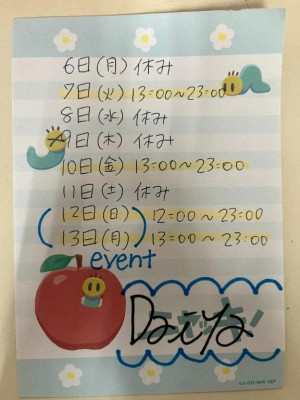 6日(月) 休み
7日(火) 13:00~23:00
8日(水) 休み
9日(木) 休み
10日(金) 13:00~23:00
11日(土) 休み
12日(日) 12:00~23:00
13日(月) 13:00~23:00
event
Daiya